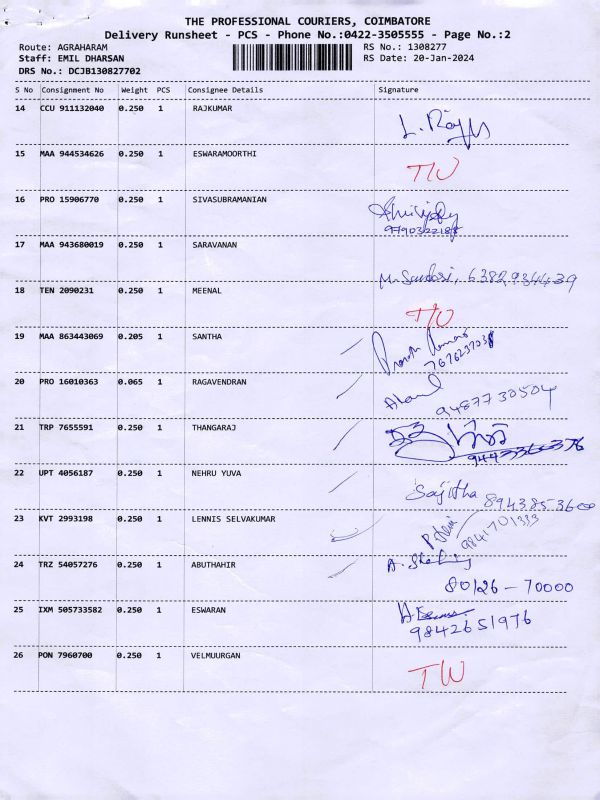 THE PROFESSIONAL COURIERS, COIMBATORE
Delivery Runsheet - PCS - Phone No.:0422-3505555 - Page No.:2
Route: AGRAHARAM RS No.: 1308277
Staff: EMIL DHARSAN RS Date: 20-Jan-2024
DRS No.: DCJB130827702
S No Consignment No Weight PCS Consignee Details Signature
14 CCU 911132040 0.250 1 RAJKUMAR
15 MAA 944534626 0.250 1 ESWARAMOORTHI
16 PRO 15906770 0.250 1 SIVASUBRAMANIAN
17 MAA 943680019 0.250 1 SARAVANAN
6382934439
18 TEN 2090231 0.250 1 MEENAL
19 MAA 863443069 0.205 1 SANTHA
20 PRO 16010363 0.065 1 RAGAVENDRAN
9487730504
21 TRP 7655591 0.250 1 THANGARAJ
22 UPT 4056187 0.250 1 NEHRU YUVA
Sajitha
23 KVT 2993198 0.250 1 LENNIS SELVAKUMAR
24 TRZ 54057276 0.250 1 ABUTHAHIR
80126-70000
25 IXM 505733582 0.250 1 ESWARAN
9842651976
26 PON 7960700 0.250 1 VELMUURGAN